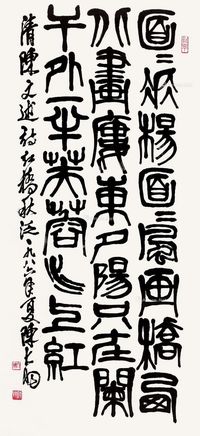 面〻楊面〻風画橋西
北畫廔東夕陽只在闌
干外一半芙蓉水上紅
清陳文述詩紅橋秋泛一九八六年夏陳大羽